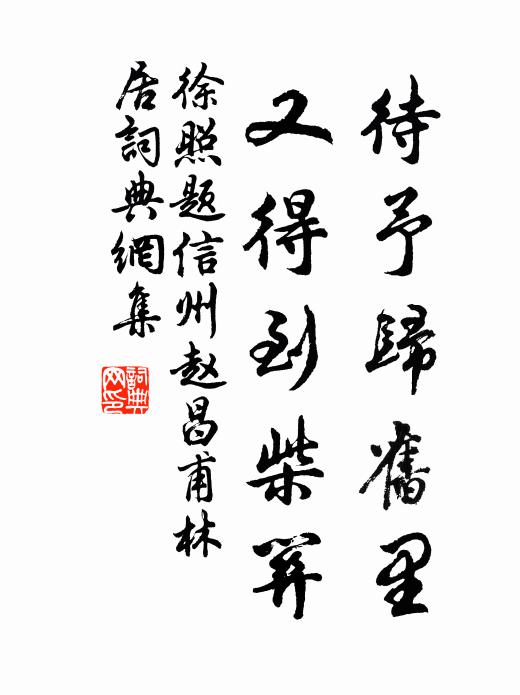 待予歸舊里
又得到柴荆
徐照題信州赵昌甫林
居詞典網集
詞典網印